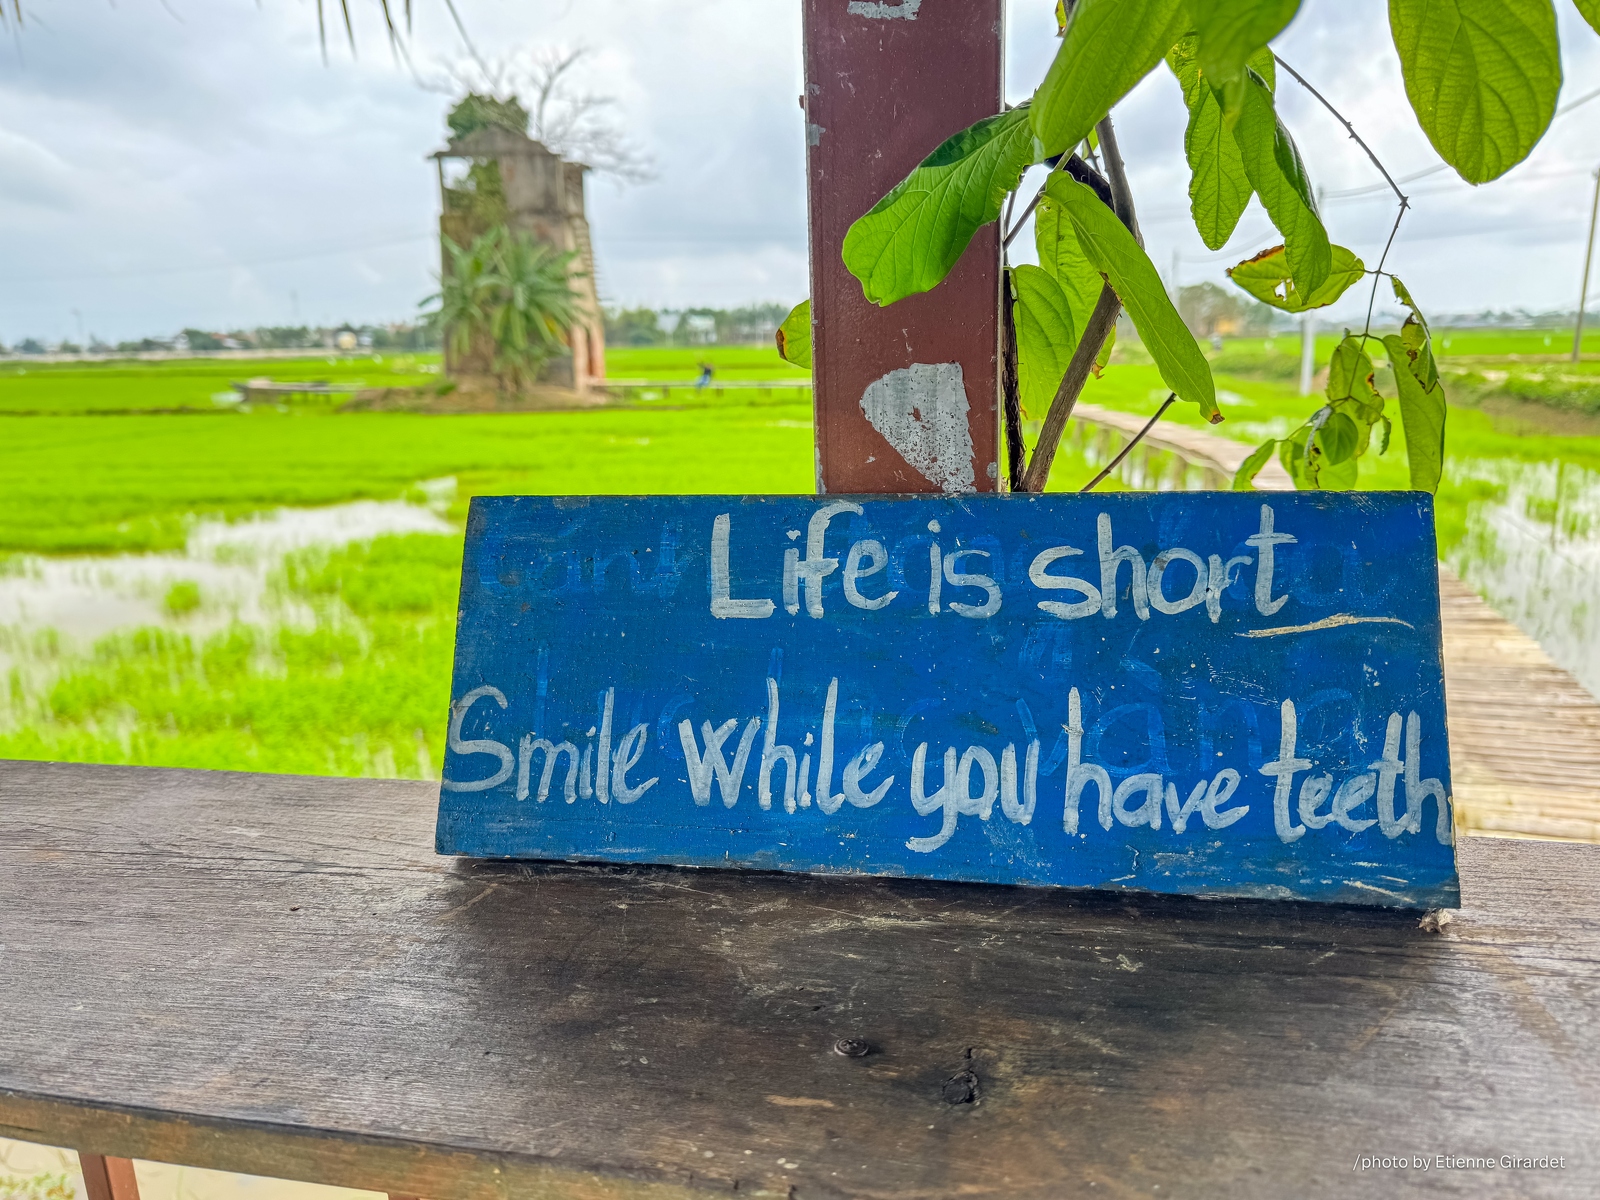 Life is short
Smile while you have teeth
/photo by Etienne Girardet